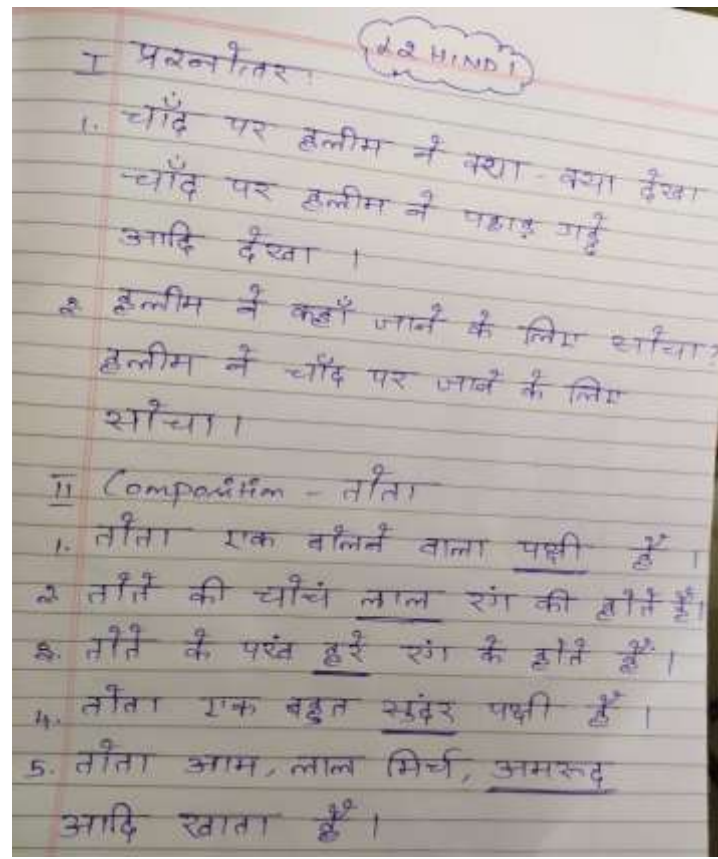 L2 HINDI
I प्रश्नोत्तर।
1. चाँद पर हलीम ने क्या-क्या देखा
चाँद पर हलीम ने पहाड़ गड्ढे
आदि देखा ।
2. हलीम ने कहाँ जाने के लिए सोचा?
हलीम ने चाँद पर जाने के लिए
सोचा ।
II Composition - तोता
1. तोता एक बोलने वाला पक्षी है ।
2 तोते की चोंच लाल रंग की होते हैं।
3. तोते के पंख हरे रंग के होते हैं ।
4. तोता एक बहुत सुंदर पक्षी है ।
5. तोता आम, लाल मिर्च, अमरूद
आदि खाता है ।